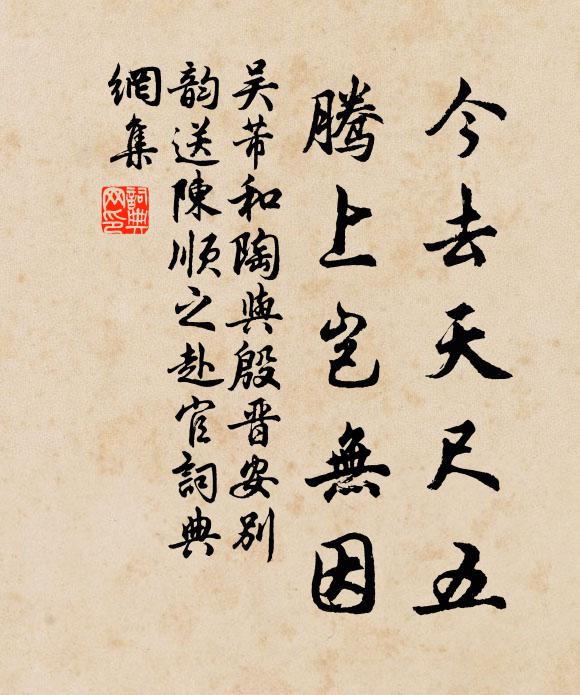 今去天尺五
騰上豈無因
吴芾和陶與殷晋安别
韵送陳順之赴官詞典
網集
詞典
网印